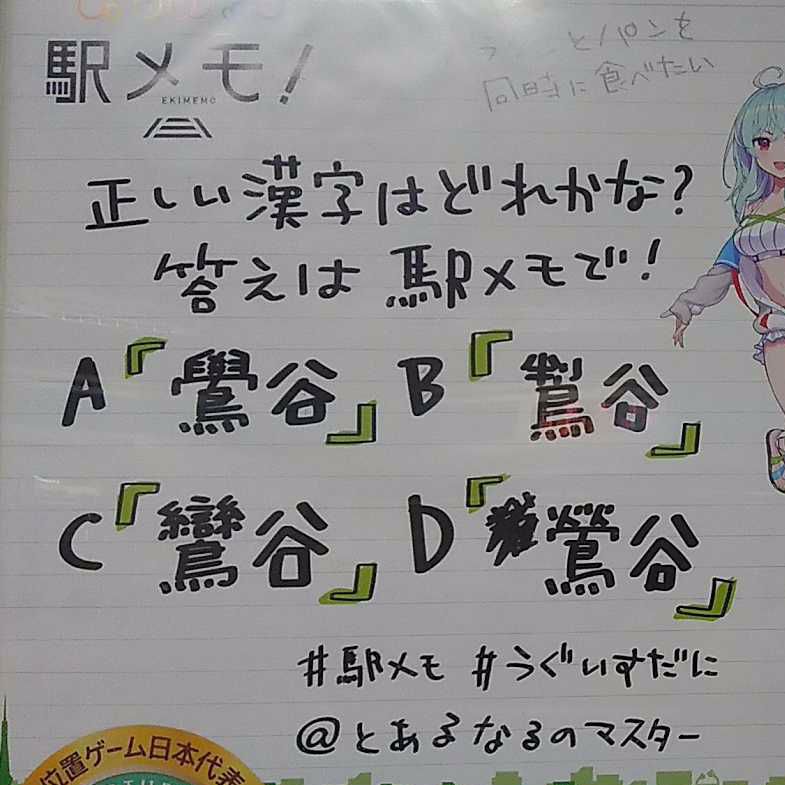 とパンを
同時に食べたい
駅メモ!
EKIMEMO
正しい漢字はどれかな?
答えは 駅メモで!
A『鷽谷』 B『谷』
C『鸞谷』 D『鶯谷』
#駅メモ #うぐいすだに
@とあるなるのマスター
位置ゲーム日本代表